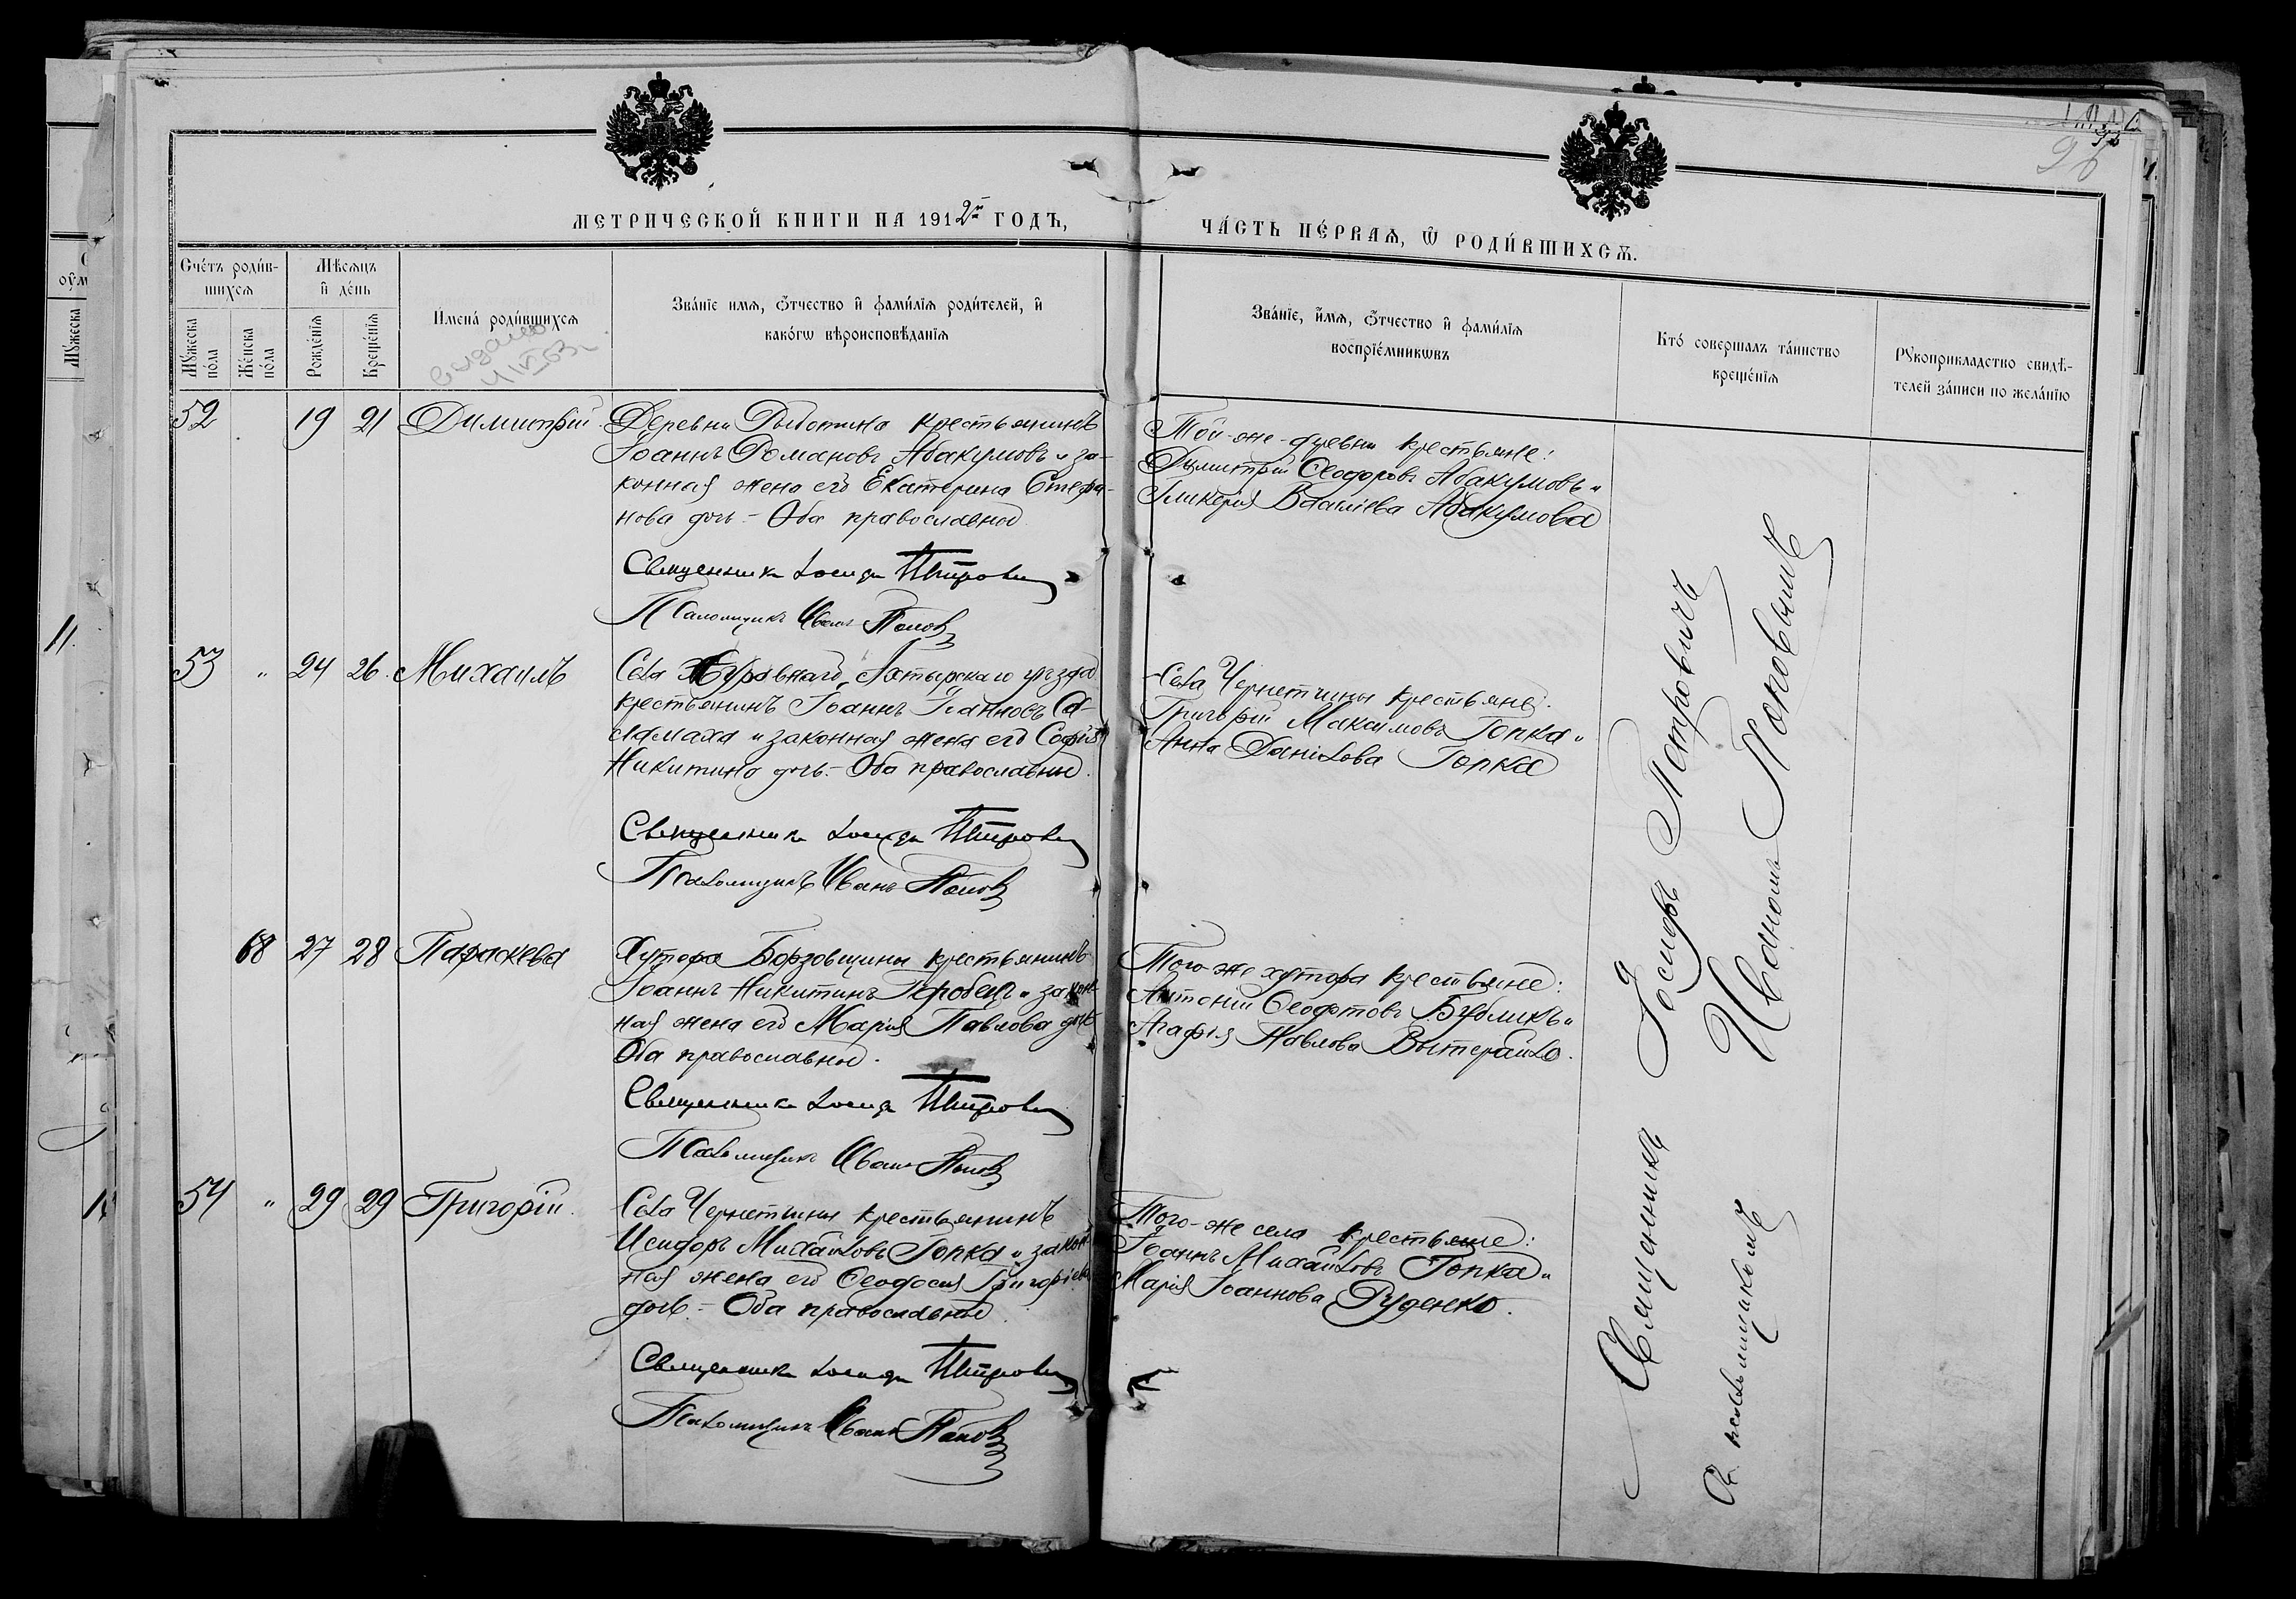 МЕТРИЧЕСКОЙ КНИГИ НА 1912й ГОДЪ,
ЧА́СТЬ ПЕ́РВАѦ, Ѿ РОДИ́ВШИХСѦ.
96
Сче́тъ роди́в-
шихсѧ
Мѣ́сѧцъ
и҆ де́нь
Му́жеска по́ла
Же́нска по́ла
Рожде́нїѧ
Креще́нїѧ
И҆мена̀ роди́вшихсѧ
Зва́нїе имѧ, ѻ҆́тчество и҆ фами́лїѧ роди́телей, и҆
како́гѡ вѣроисповѣ́данїѧ
Зва́нїе, и҆́мѧ, ѻ҆́тчество и҆ фами́лїѧ
воспрїе́мникѡвъ
Кто̀ соверша́лъ та́инство
креще́нїѧ
Рукоприкладство свидѣ́-
телей за́писи по жела́нїю
52 19 21 Димитрій
Деревни Рыботина крестьянинъ
Іоаннъ Романовъ Абакумовъ и за-
конная жена его Екатерина Стефа-
нова дочь.- Оба православные
Священникъ Іосифъ Петрович
Псаломщикъ Иванъ Попов
Той-же деревни крестьяне:
Димитрій Ѳеодоровъ Абакумовъ и
Гликерія Василіева Абакумова
53 " 24 26 Михаилъ
Села Журавнаго, Ахтырскаго уѣзда
крестьянинъ Іоаннъ Іоанновъ Са-
ламаха и законная жена его Софія
Никитина дочь.- Оба православные.
Священникъ Іосифъ Петрович
Псаломщикъ Иванъ Попов
Села Чернетчины крестьяне:
Григорій Максимовъ Гопка и
Анна Данилова Гопка
68 27 28 Параскева
Хутора Борзовщины крестьянинъ
Іоаннъ Никитинъ Горобецъ и закон-
ная жена его Марія Павлова дочь
Оба православные.
Священникъ Іосифъ Петрович
Псаломщикъ Иванъ Попов
Того-же хутора крестьяне:
Антоній Ѳеофтовъ Бубликъ и
Агафія Павлова
54 " 29 29 Григорій
Села Чернетчины крестьянинъ
Исидоръ Михайловъ Гопка и закон-
ная жена его Ѳеодосія Григоріева
дочь.- Оба православные
Священникъ Іосифъ Петрович
Псаломщикъ Иванъ Попов
Того-же села крестьяне:
Іоаннъ Михайловъ Гопка и
Марія Іоаннова Руденко.
Священникъ Іосифъ Петровичъ
Съ псаломщикомъ Иваномъ Поповымъ